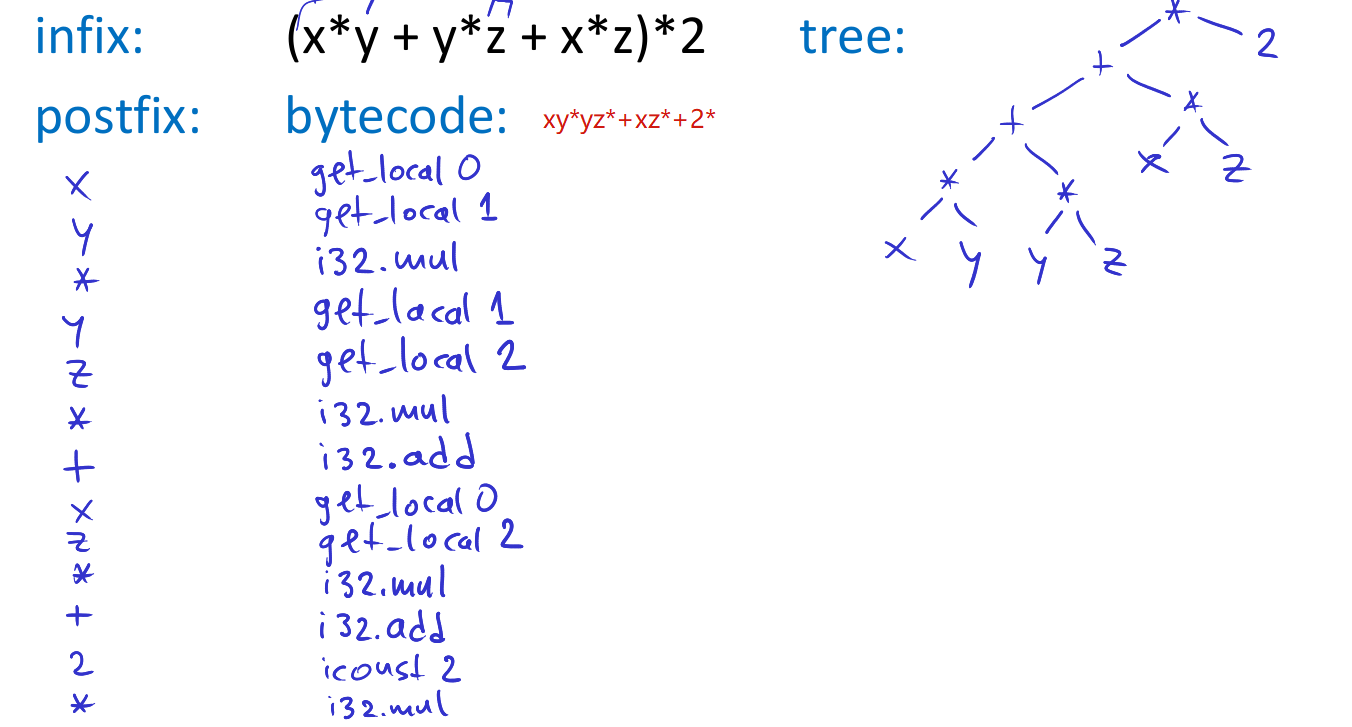 infix: (x*y + y*z + x*z)*2 tree:
postfix: bytecode: xy*yz*+xz*+2*
x get_local 0
y get_local 1
* i32.mul
y get_lacal 1
z get_local 2
* i32.mul
+ i32.add
x get_local 0
z get_local 2
* i32.mul
+ i32.add
2 iconst 2
* i32.mul
*
2
+
+ *
x z
* *
x y y z